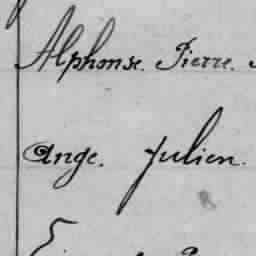 Alphonse. Pierre.
Ange. Julien.